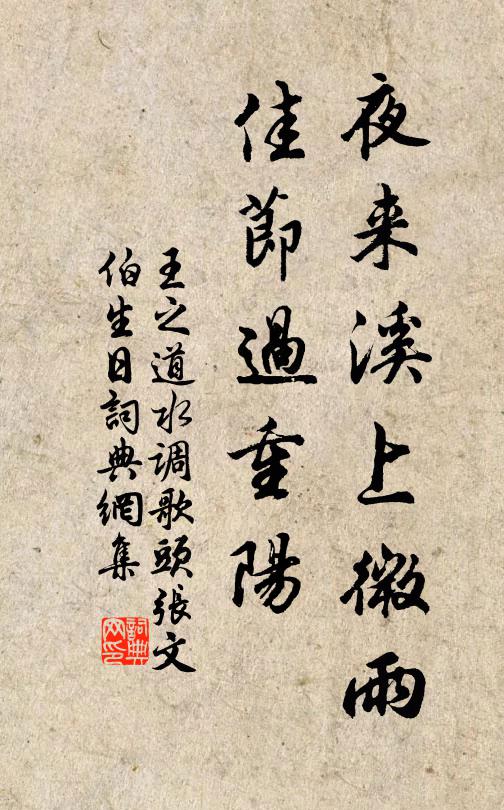 夜来溪上微雨
佳節過重陽
王之道水调歌頭張文
伯生日詞典網集
詞典
网印